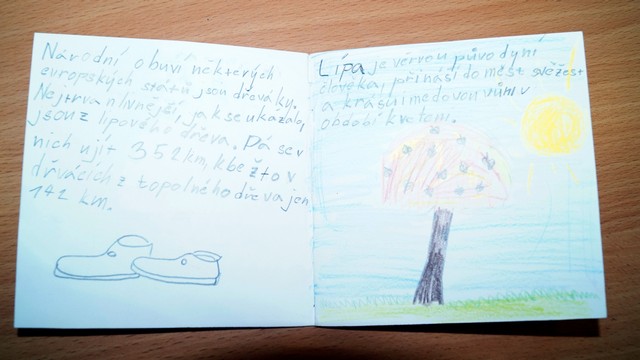 Národní obuví některých
evropských států jsou dřeváky.
Nejtrvanlivnější, jak se ukázalo,
jsou z lipového dřeva. Dá se v
nich ujít 352 km, kbežto v
dřvácích z topolného dřeva jen
142 km.
Lípa je věrrou původyní
člověka, přináší do měst svěžest
a krásu i medovou vůni v
období kvetení.